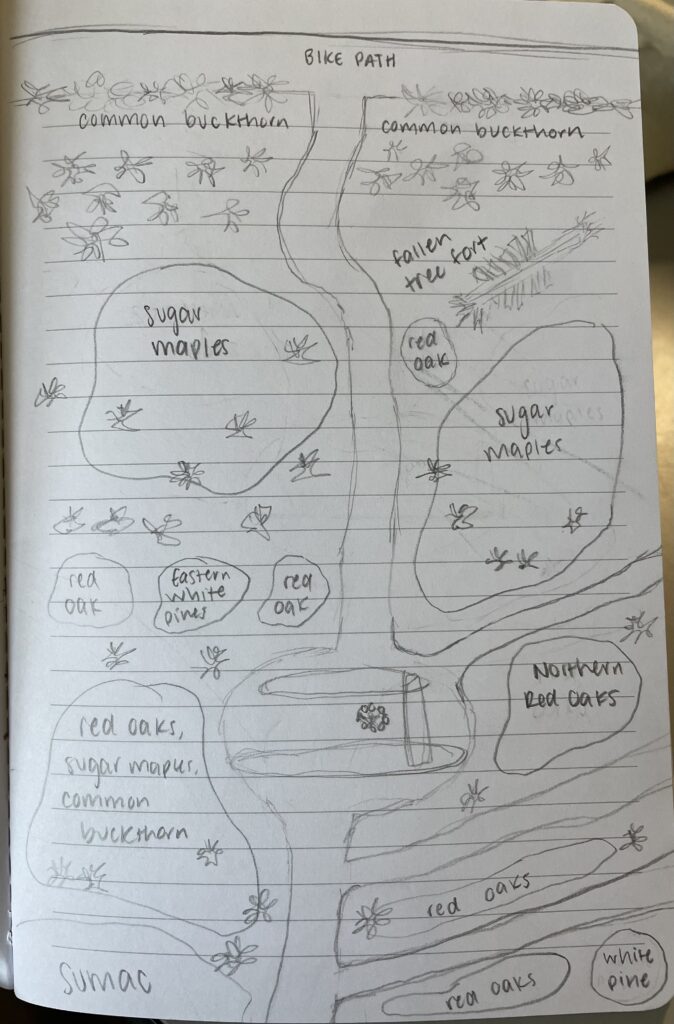 BIKE PATH
common buckthorn
common buckthorn
fallen
tree fort
sugar
maples
red
oak
sugar
maples
red
oak
Eastern
white
pines
red
oak
Northern
Red Oaks
red oaks,
sugar maples,
common
buckthorn
red oaks
sumac
red oaks
white
pine